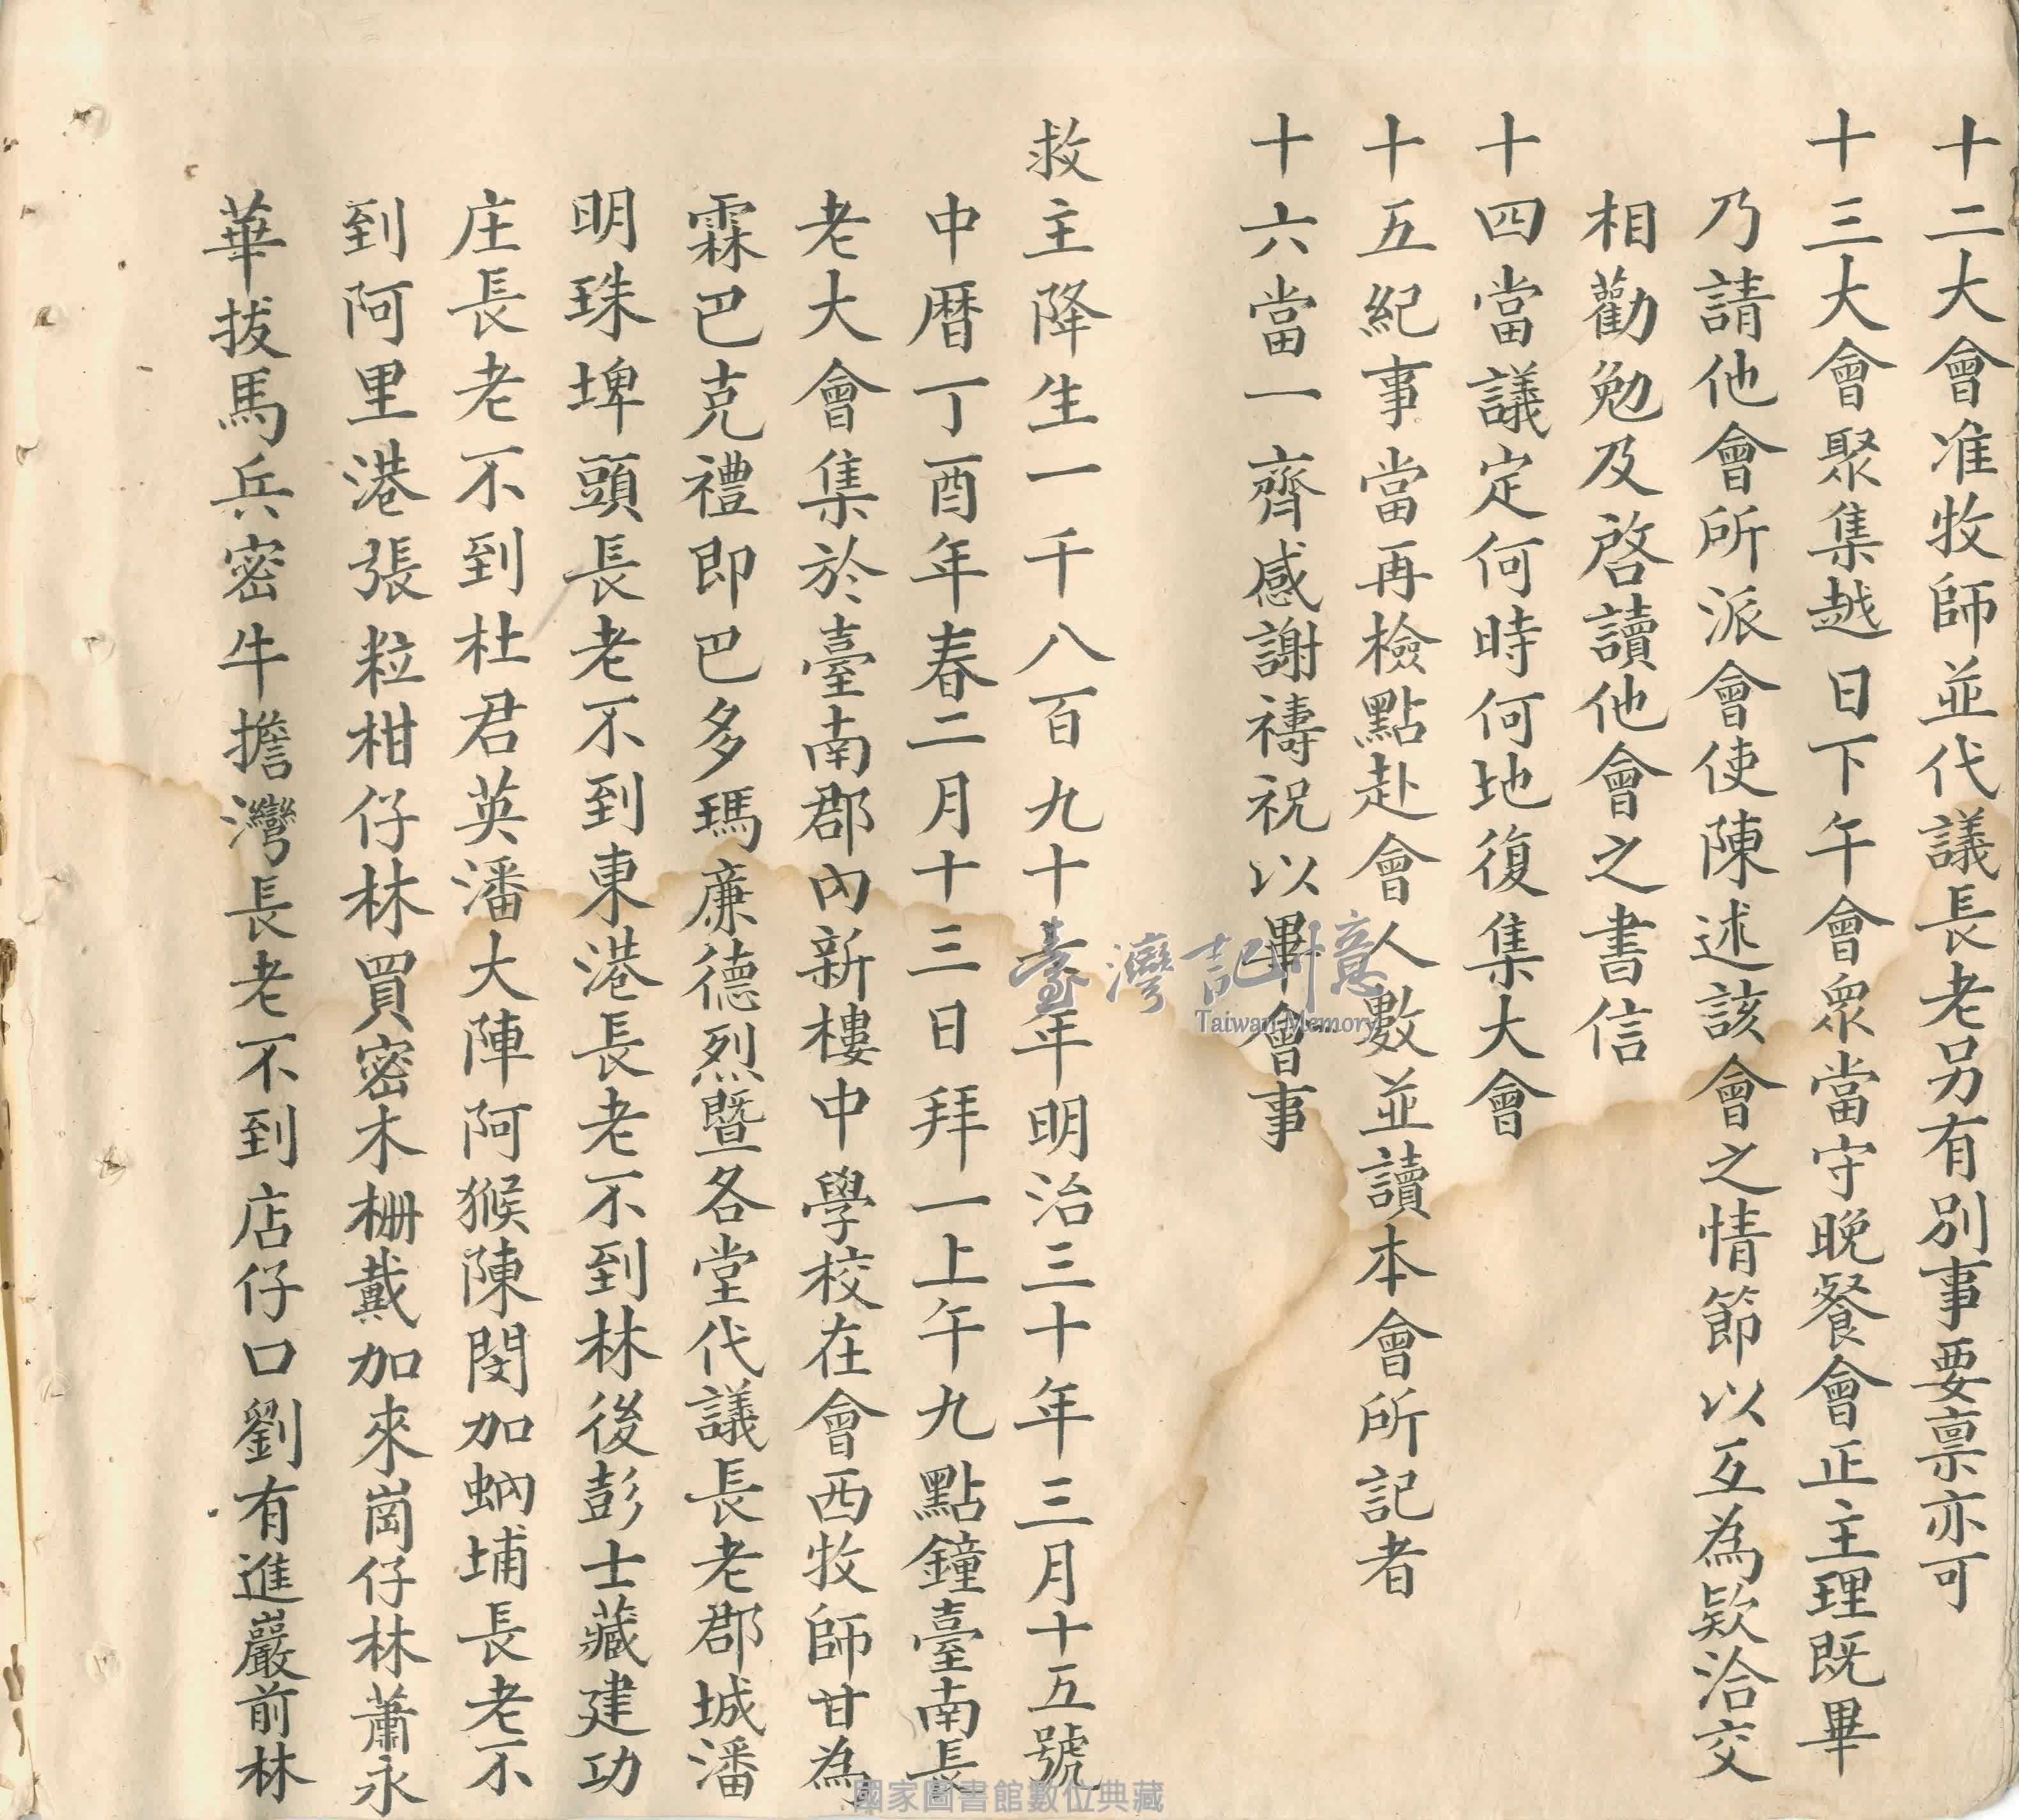 十二大會准牧師並代議長老另有別事要禀亦可
十三大會聚集越日下午會眾當守晚餐會正主理既畢
乃請他會所派會使陳述該會之情節以互為欵洽交
相勸勉及啓讀他會之書信
十四當議定何時何地復集大會
十五紀事當再檢點赴會人數並讀本會所記者
十六當一齊感謝禱祝以畢會事
救主降生一千八百九十年明治三十年三月十五號
中曆丁酉年春二月十三日拜一上午九點鐘臺南長
老大會集於臺南郡內新樓中學校在會西牧師甘為
霖巴克禮即巴多瑪廉德烈暨各堂代議長老郡城潘
明珠埤頭長老不到東港長老不到林後彭士藏建功
庄長老不到杜君英潘大陣阿猴陳閔加蚋埔長老不
到阿里港張粒柑仔林買密木柵戴加來崗仔林蕭永
華拔馬兵密牛擔灣長老不到店仔口劉有進巖前林
臺灣記憶
Taiwan Memory
國家圖書館數位典藏